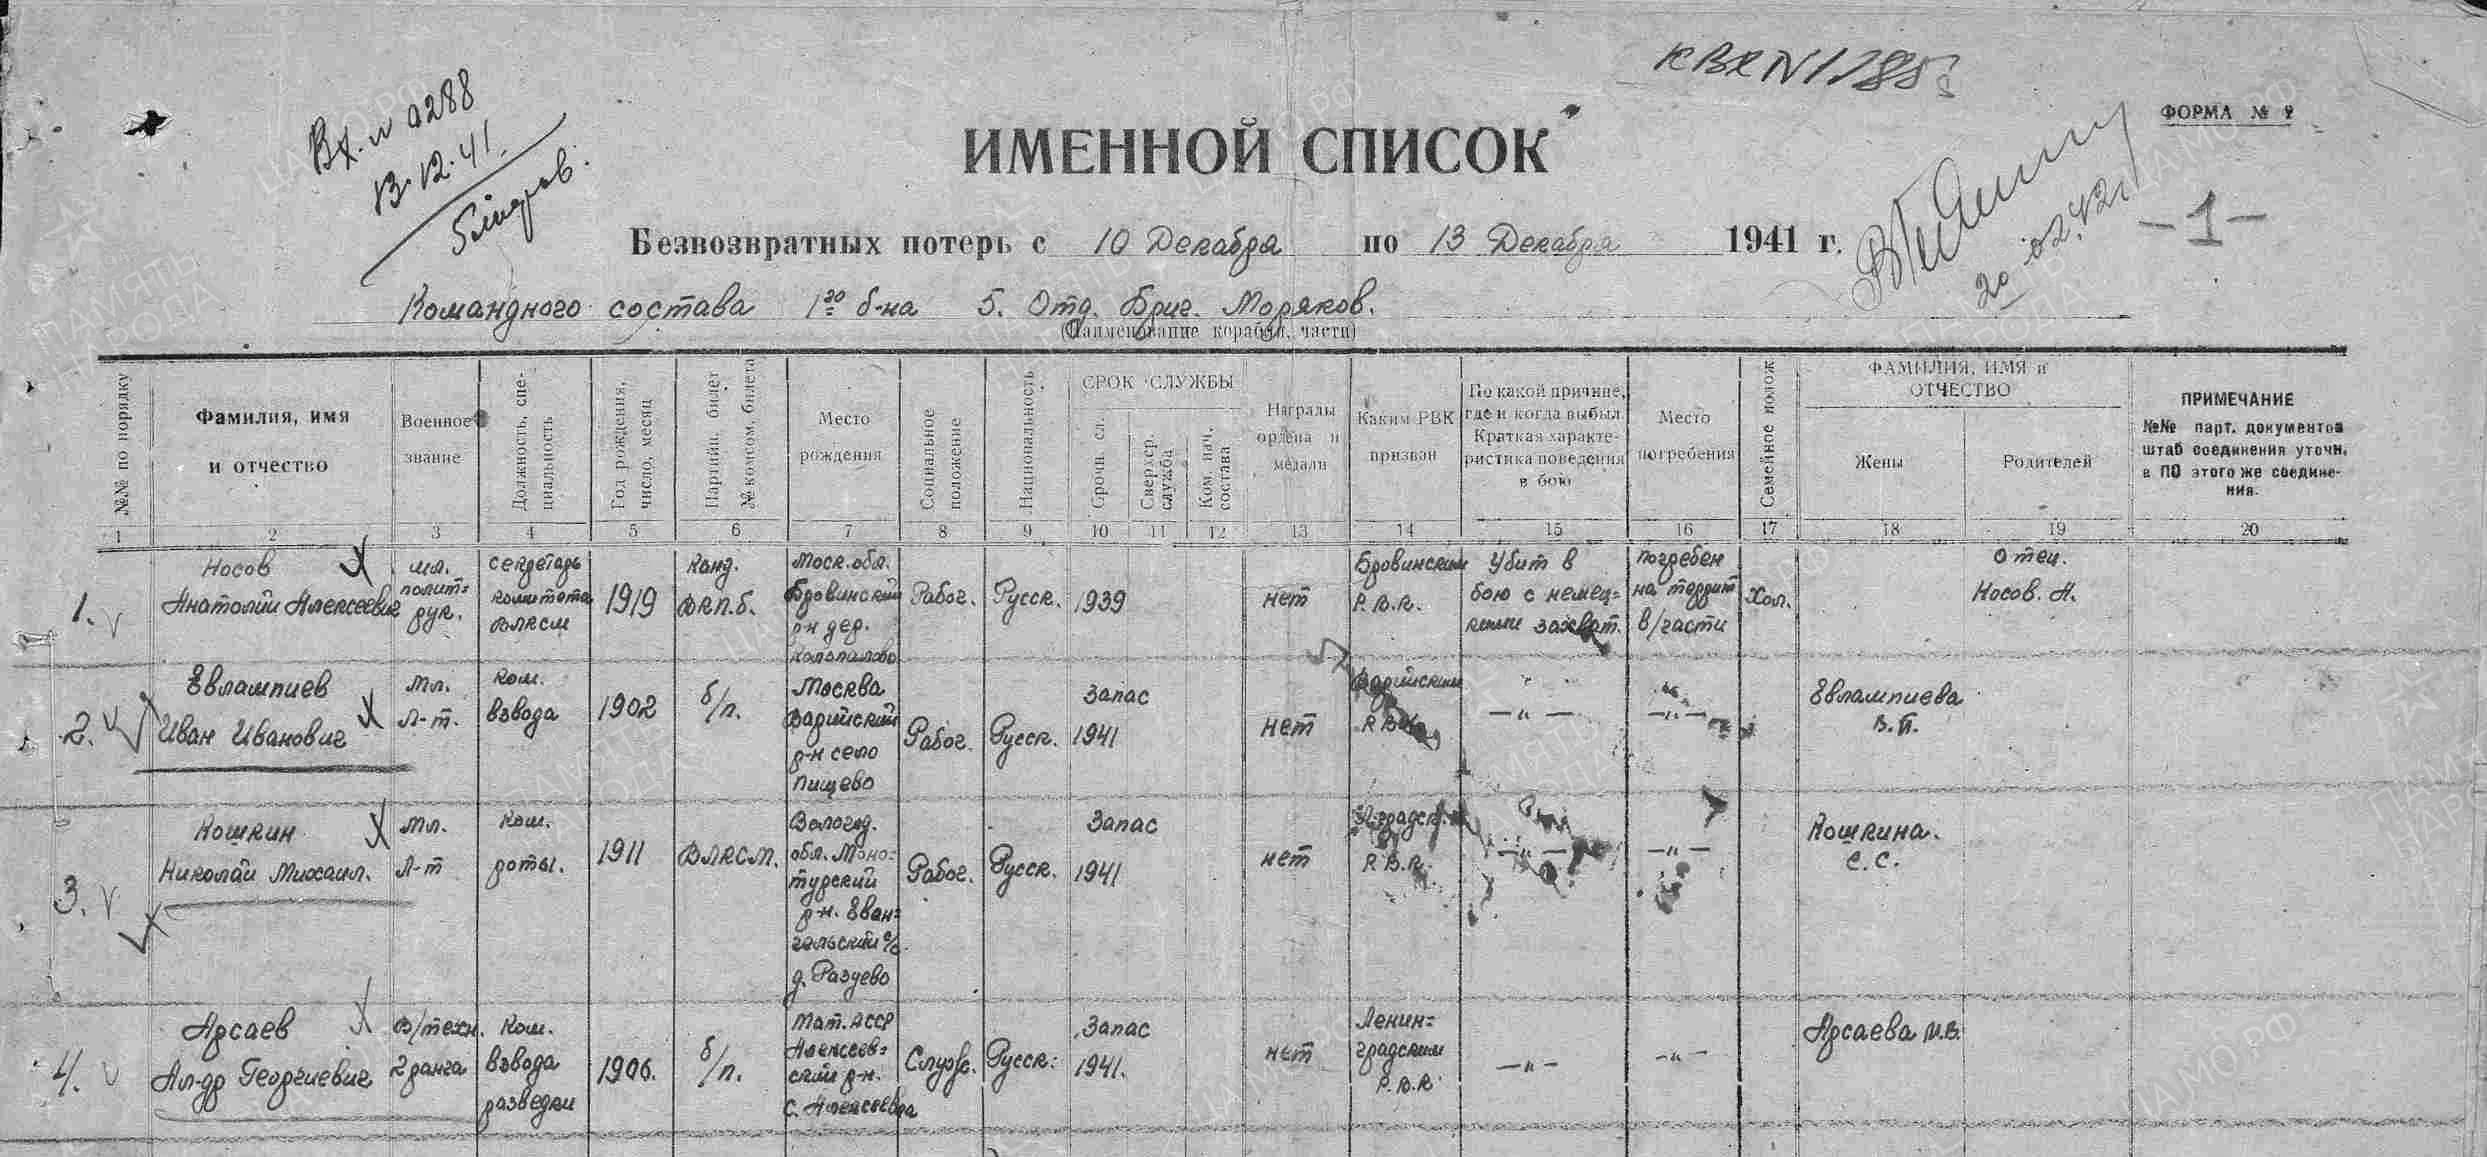 Вх. № 0288
13.12.41.
ФОРМА №
ИМЕННОЙ СПИСОК
-1-
20.02.42г.
Безвозвратных потерь с 10 Декабря по 13 Декабря 1941 г.
Командного состава 1го б-на 5. Отд. Бриг. Моряков.
(Наименование корабля, части)
№№ по порядку
Фамилия, имя и отчество
Военное звание
Должность, специальность
Год рождения, число, месяц
Партийн. билет № комсом. билета
Место рождения
Социальное положение
Национальность
СРОК СЛУЖБЫ
Срочн. сл.
Сверхср. служба
Ком. нач. состава
Награды ордена и медали
Каким РВК призван
По какой причине, где и когда выбыл. Краткая характеристика поведения в бою
Место погребения
Семейное полож
ФАМИЛИЯ, ИМЯ и ОТЧЕСТВО
Жены
Родителей
ПРИМЕЧАНИЕ
№№ парт. документов штаб соединения уточн. в ПО этого же соединения.
1 2 3 4 5 6 7 8 9 10 11 12 13 14 15 16 17 18 19 20
1. Носов Анатолий Алексеевич
мл. политрук.
секретарь комитета ВЛКСМ
1919
канд. ВКП.б.
Моск. обл. р-н дер.
Рабоч.
Русск.
1939
нет
Р.В.К.
Убит в бою с немецкими захват.
погребен на террит в/части
Хол.
Отец.
Носов. А.
2. Евлампиев Иван Иванович
мл. л-т.
ком. взвода
1902
б/п.
Москва р-н село Пищево
Рабоч.
Русск.
Запас 1941
нет
РВК
—"—
—"—
Евлампиева В.П.
3. Кошкин Николай Михаил.
мл. л-т
ком. роты.
1911
ВЛКСМ.
Вологод. обл. р-н. д. Разуево
Рабоч.
Русск.
Запас 1941
нет
Р.В.К.
—"—
—"—
Кошкина. С.С.
4. Арсаев Ал-др Георгиевич
В/техн. 2 ранга
ком. взвода разведки
1906.
б/п.
Тат. АССР Алексеевский р-н. с.
Служ.
Русск.
Запас 1941.
нет
Ленинградским Р.В.К.
—"—
—"—
Арсаева
ПАМЯТЬ НАРОДА
ЦАМО.РФ